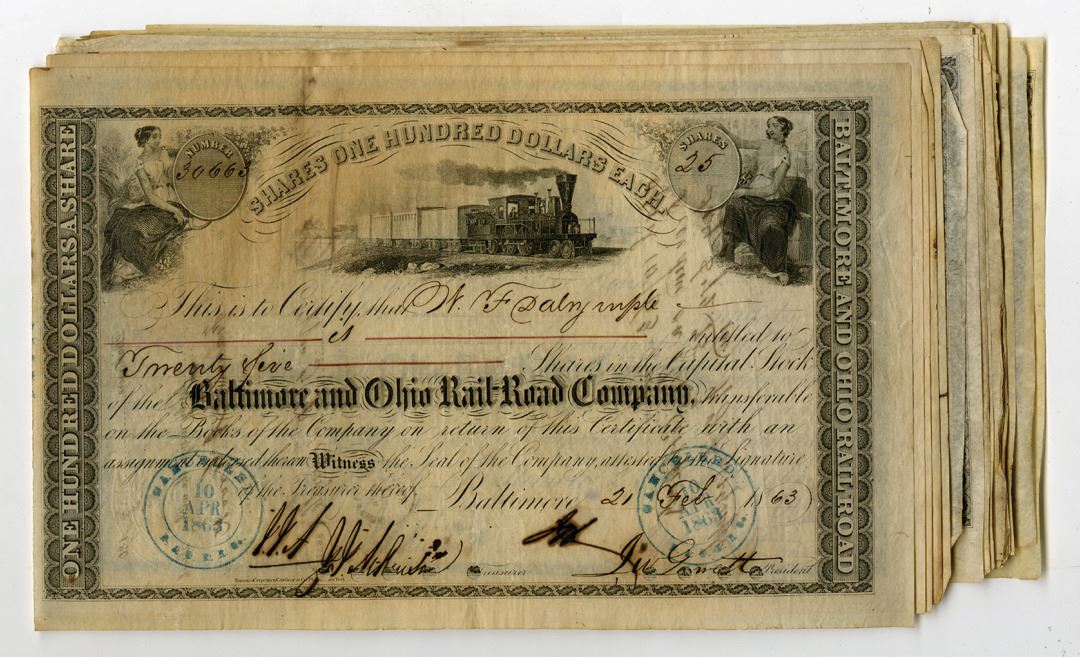 NUMBER
30663
SHARES ONE HUNDRED DOLLARS EACH.
SHARES
25
ONE HUNDRED DOLLARS A SHARE
BALTIMORE AND OHIO RAIL ROAD
This is to Certify, that W. F. Dalrymple
is entitled to
Twenty five Shares in the Capital Stock
of the Baltimore and Ohio Rail-Road Company, transferable
on the Books of the Company on return of this Certificate with an
assignment endorsed thereon Witness the Seal of the Company, attested by the Signature
of the Treasurer thereof. Baltimore 21 Feb 1863
CANCELLED
10
APR
1863
B. & O. R. R. Co.
CANCELLED
10
APR
1863
B. & O. R. R. Co.
Treasurer
President